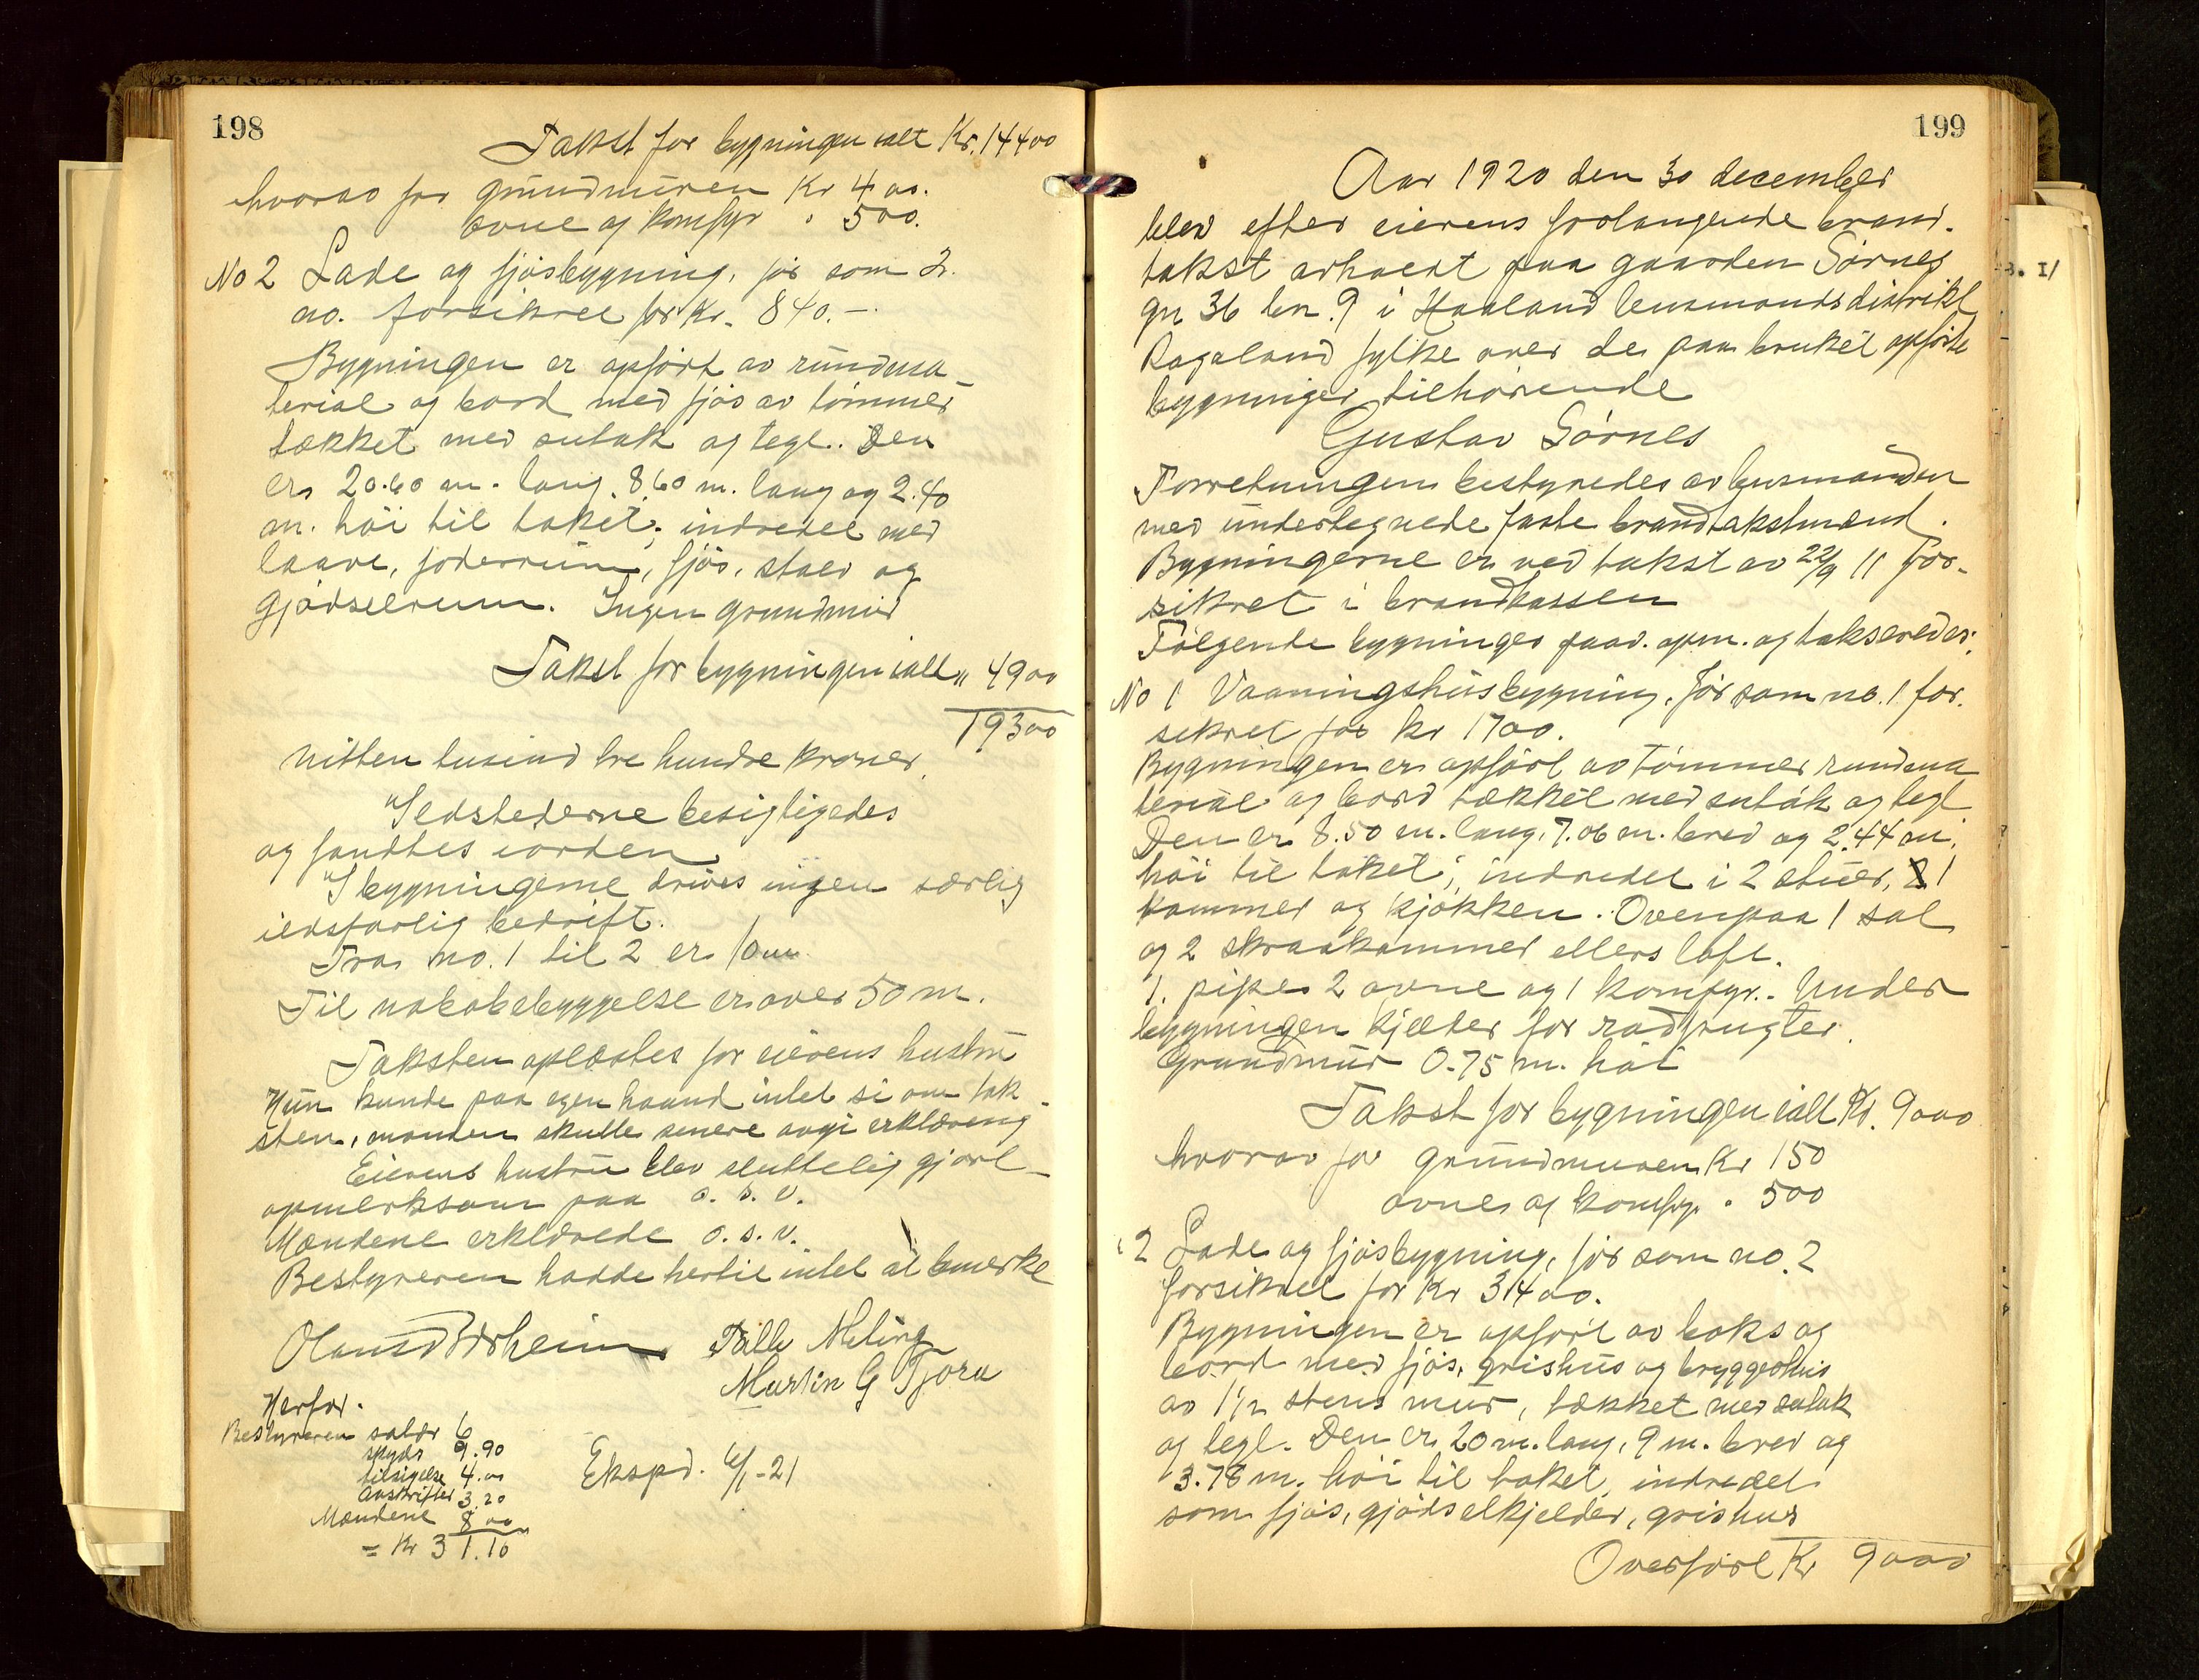 198
Takst for bygningen ialt Kr. 14400
hvorav for grundmuren Kr 400.
ovne og komfyr " 500.
No 2 Lade og fjøsbygning, før som 2.
no. forsikret for Kr. 840.-
Bygningen er opført av rundma-
terial og bord med fjøs av tømmer
tækket med sutak og tegl. Den
er 20.60 m. lang. 8.60 m. lang og 2.40
m. høi til taket; indredet med
laave, foderrum, fjøs, stald og
gjødselrum. Ingen grundmur
Takst for bygningen ialt " 4900
19300
nitten tusind tre hundre kroner.
Ildstederne besigtigedes
og fandtes iorden
I bygningerne drives ingen særlig
ildsfarlig bedrift.
Fra no. 1 til 2 er 10 m
Til nabobebyggelse er over 50 m.
Taksten oplæstes for eierens hustru
Hun kunde paa egen haand intet si om tak-
sten, manden skulle senere avgi erklæring
Eierens hustru blev sluttelig gjort
opmerksom paa o. s. v.
Mændene erklærede o. s. v.
Bestyreren hadde hertil intet at bemerke
Tølle Meling
Martin G Tjora
Herfor.
Bestyreren salær 6
skyds 9.90
tilsigelse 4.00
Avskrifter 3.20
Mændene 8.00
= Kr 31.10
Ekspd. 6/1-21
199
Aar 1920 den 30 december
blev efter eierens forlangende brand-
takst avholdt paa gaarden Sørnes
gn 36 bn. 9 i Haaland lensmandsdistrikt
Rogaland fylke over de paa bruket opførte
bygninger tilhørende
Gustav Sørnes
Forretningen bestyredes av lensmanden
med undertegnede faste brandtakstmænd.
Bygningerne er ved takst av 22/9 11 for-
sikret i brandkassen
Følgende bygninger paav. opm. og takseredes:
No 1 Vaaningshusbygning. før som no. 1 for-
sikret for kr 1700.
Bygningen er opført av tømmer rundma
terial og bord tækket med sutak og tegl
Den er 8.50 m. lang, 7.06 m. bred og 2.44 m.
høi til taket; indredet i 2 stuer, 1
kammer og kjøkken. Ovenpaa 1 sal
og 2 skraakammer ellers loft.
1. pipe 2 ovne og 1 komfyr. Under
bygningen kjælder for rodfrugter.
Grundmur 0.75 m. høi
Takst for bygningen ialt Kr. 9000
hvorav for grundmuren Kr 150
ovne og komfyr " 500
" 2 Lade og fjøsbygning, før som no. 2
forsikret for Kr 3400.
Bygningen er opført av boks og
bord med fjøs, grishus og bryggerhus
av 1 1/2 stens mur, tækket med sutak
og tegl. Den er 20 m. lang, 9 m. bred og
3.78 m. høi til taket, indredet
som fjøs, gjødselkjelder, grishus
Overført Kr 9000